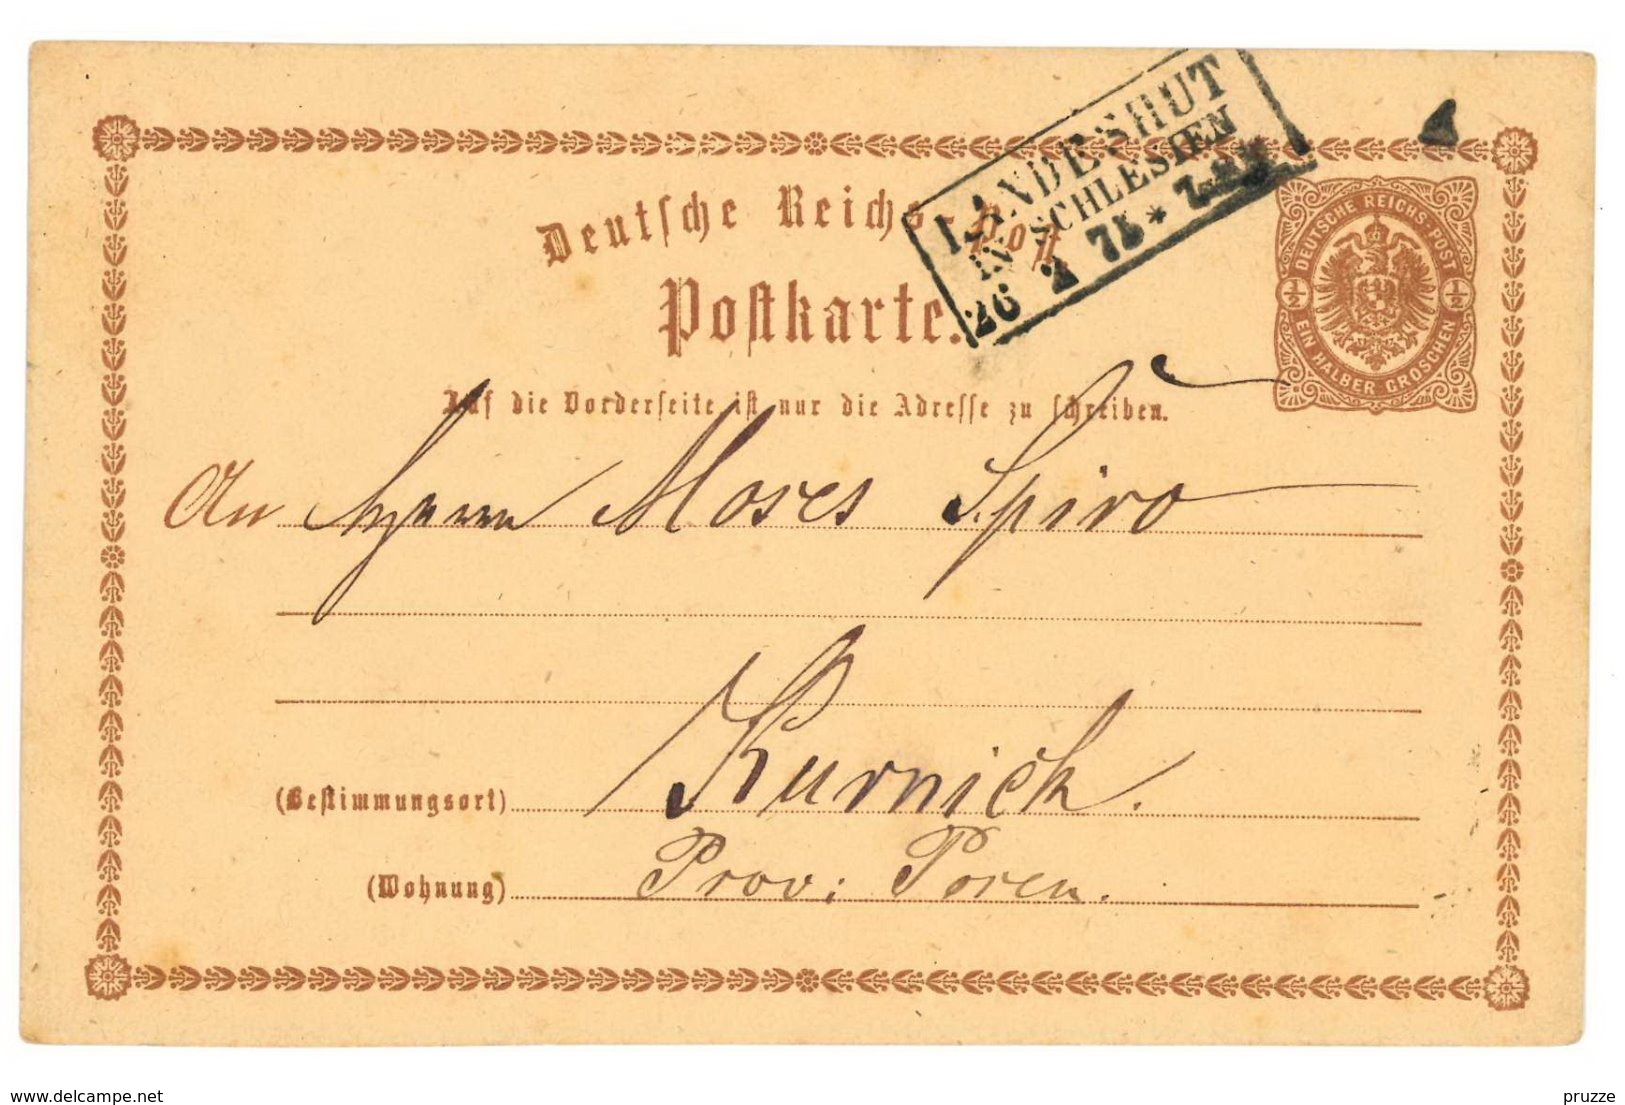 LANDESHUT
IN SCHLESIEN
26 2 75 *
Deutsche Reichs-Post
Postkarte.
DEUTSCHE REICHS-POST
1/2 1/2
EIN HALBER GROSCHEN
Auf die Vorderseite ist nur die Adresse zu schreiben.
An Herrn Moses Spiro
(Bestimmungsort) Kurnick.
(Wohnung) Prov: Posen.
www.delcampe.net
pruzze